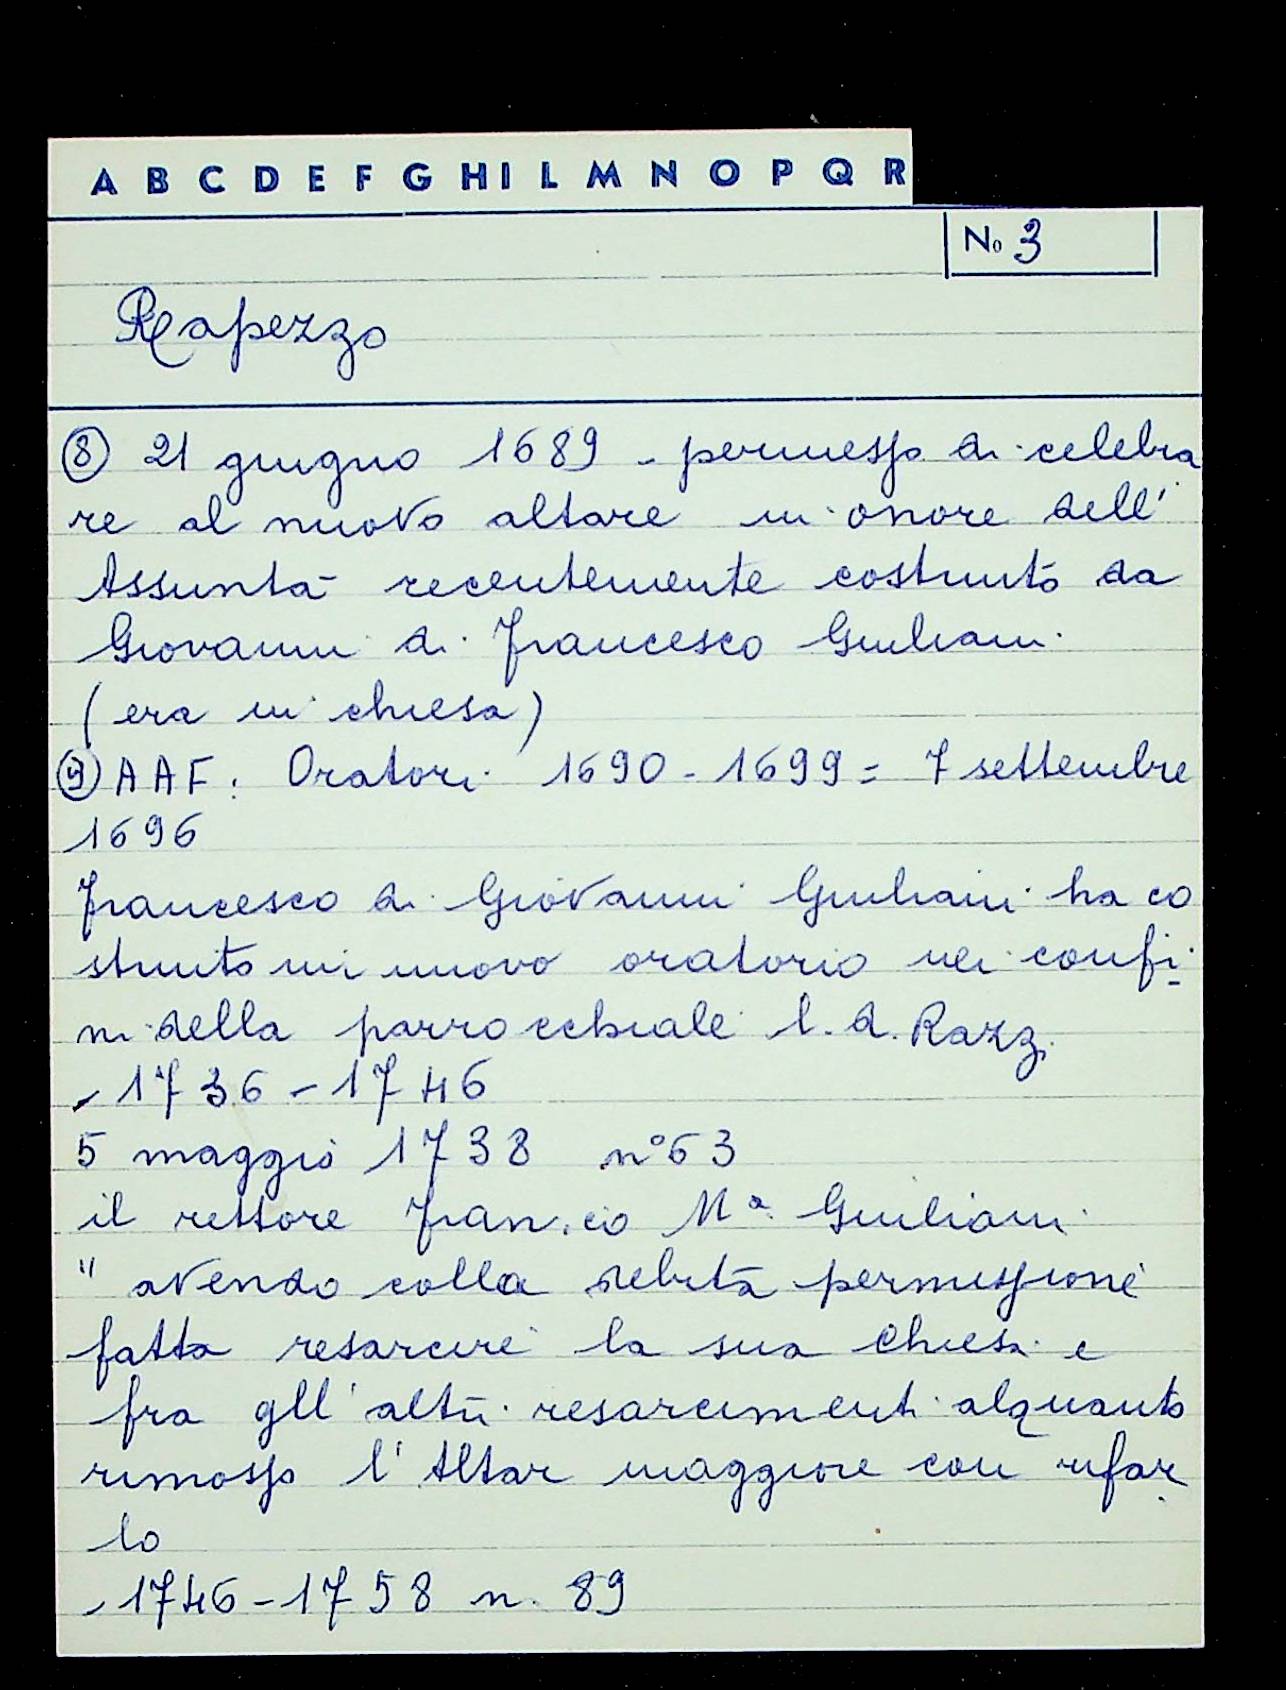 A B C D E F G H I L M N O P Q R
No 3
Rapezzo
⑧ 21 giugno 1689 - permesso di celebra
re al nuovo altare in onore dell'
Assunta recentemente costruito da
Giovanni di Francesco Giuliani
(era in chiesa)
⑨ AAF: Oratori 1690-1699 = 7 settembre
1696
Francesco di Giovanni Giuliani ha co
struito un nuovo oratorio nei confi
ni della parrocchiale l. d. Razz.
- 1736-1746
5 maggio 1738 n° 63
il rettore Fran.co Mª Giuliani
" avendo colla debita permissione
fatta resarcire la sua Chiesa e
fra gll'altri resarcimenti alquanto
rimosso l'Altar maggiore con rifar
lo
- 1746-1758 n. 89